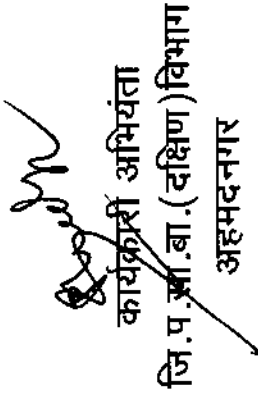 कार्यकारी अभियंता
जि.प.सा.बा.(दक्षिण)विभाग
अहमदनगर